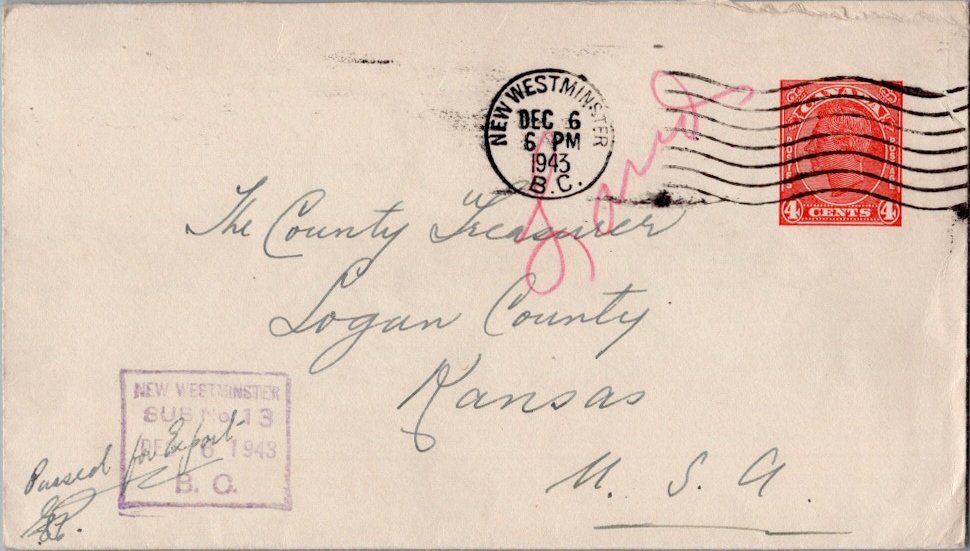 NEW WESTMINSTER
DEC 6
6 PM
1943
B.C.
CANADA
POSTES
POSTAGE
4 CENTS 4
The County Treasurer
Logan County
Kansas
U. S. A.
NEW WESTMINSTER
SUB No. 13
DEC 6 1943
B. C.
Passed for Export